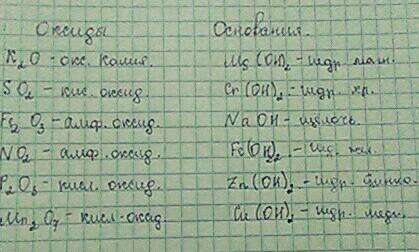 Оксиды Основания.
K₂O - окс. калия. Mg(OH)₂ - гидр. маг.
SO₂ - кис. оксид. Cr(OH)₂ - гидр. хр.
Fe₂O₃ - амф. оксид. NaOH - щёлочь.
NO₂ - амф. оксид. Fe(OH)₂ - гид. жел.
P₂O₅ - кисл. оксид. Zn(OH)₂ - гидр. цинка.
Mn₂O₇ - кисл. оксид. Cu(OH)₂ - гидр. меди.